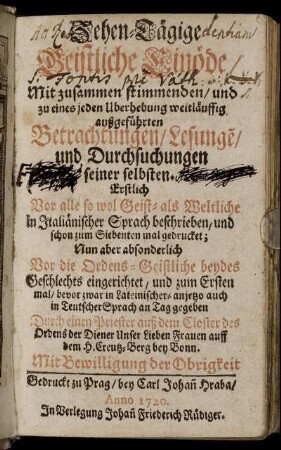 Zehen-Tägige
Geistliche Einöde/
Mit zusammen stimmenden/ und
zu eines jeden Uberhebung weitläuffig
außgeführten
Betrachtungen/ Lesungẽ/
und Durchsuchungen
seiner selbsten.
Erstlich
Vor alle so wol Geist- als Weltliche
in Italiänischer Sprach beschrieben/ und
schon zum Siebenten mal gedrucket;
Nun aber absonderlich
Vor die Ordens-Geistliche beydes
Geschlechts eingerichtet/ und zum Ersten
mal/ bevor zwar in Lateinischer- anjetzo auch
in Teutscher Sprach an Tag gegeben
Durch einen Priester auß dem Closter des
Ordens der Diener Unser Lieben Frauen auff
dem H. Creutz-Berg bey Bonn.
Mit Bewilligung der Obrigkeit
Gedruckt zu Prag/ bey Carl Johañ Hraba/
Anno 1720.
In Verlegung Johañ Friederich Rüdiger.